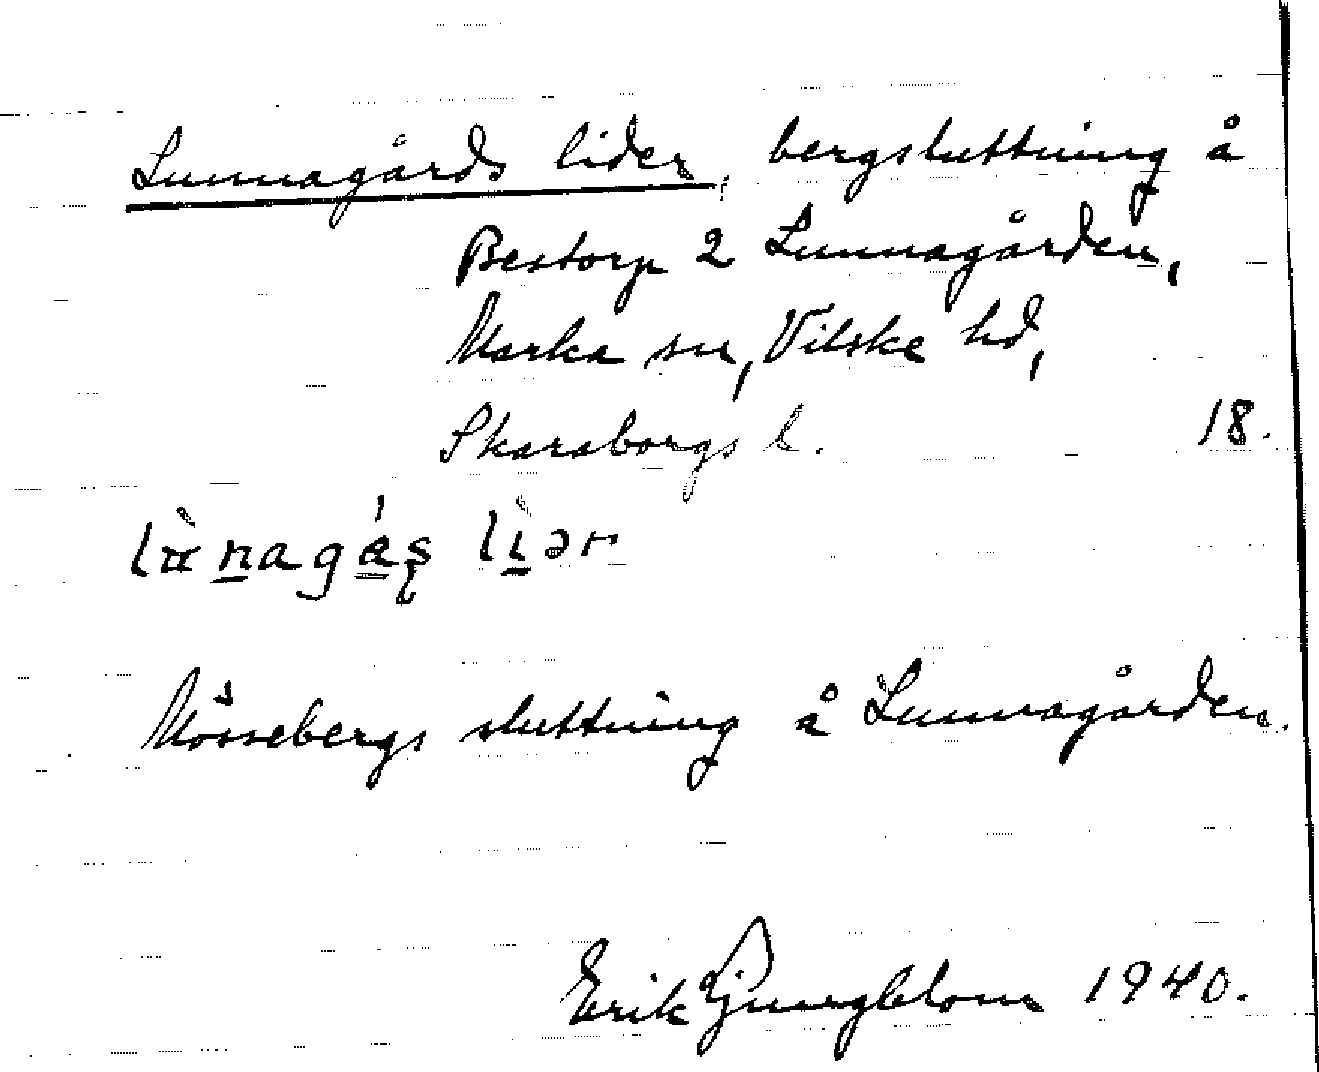 Lunnagårds lider, bergsluttning å
Bestorp 2 Lunnagården,
Marka sn, Vilske hd,
Skaraborgs l. 18.
lìər
Mössebergs sluttning å Lunnagården.
Erik Ljungblom 1940.